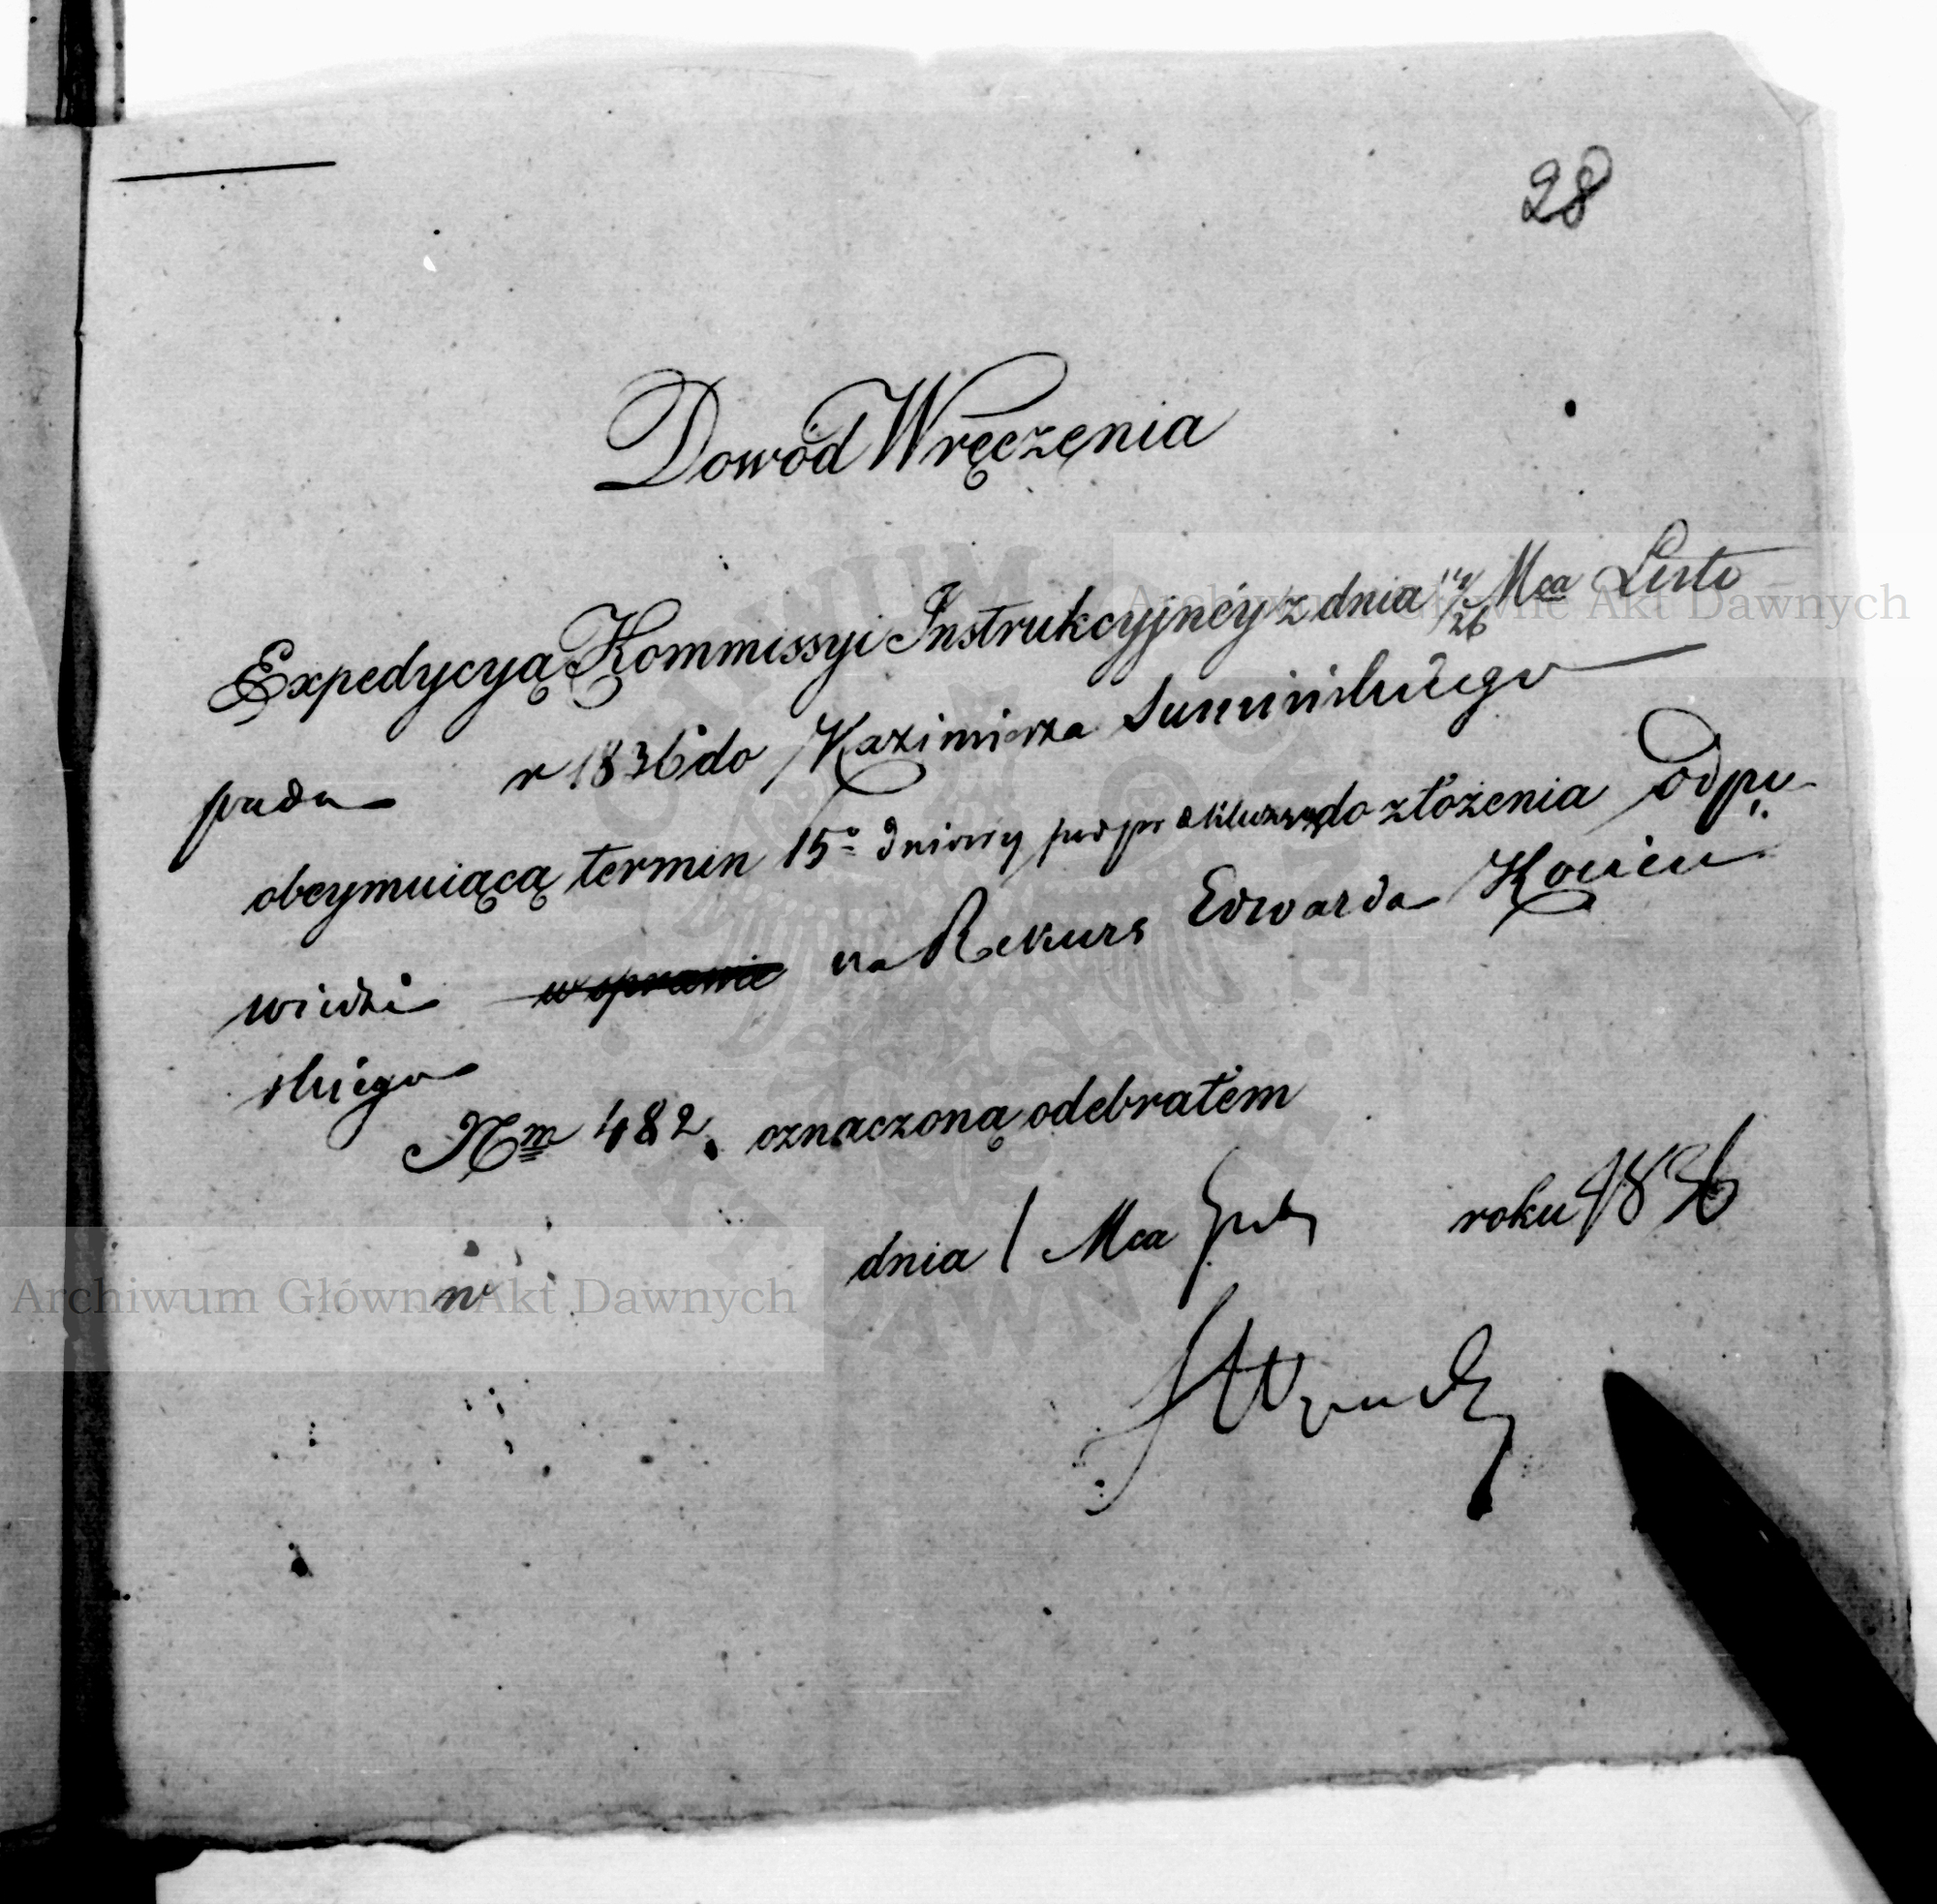 28
Dowód Wręczenia
Expedycyą Kommissyi Instrukcyjnéy z dnia 14/26 Mca Listo
pada r 1836 do Kazimierza Sumińskiego
obeymuiącą termin 15o dniowy pod prekluzyą do złożenia Odpo
wiedzi w sprawie na Rekurs Edwarda Koniew
skiego
Nrm 482. oznaczoną odebrałem
w dnia 1 Mca roku 1836
Archiwum Główne Akt Dawnych
Archiwum Główne Akt Dawnych